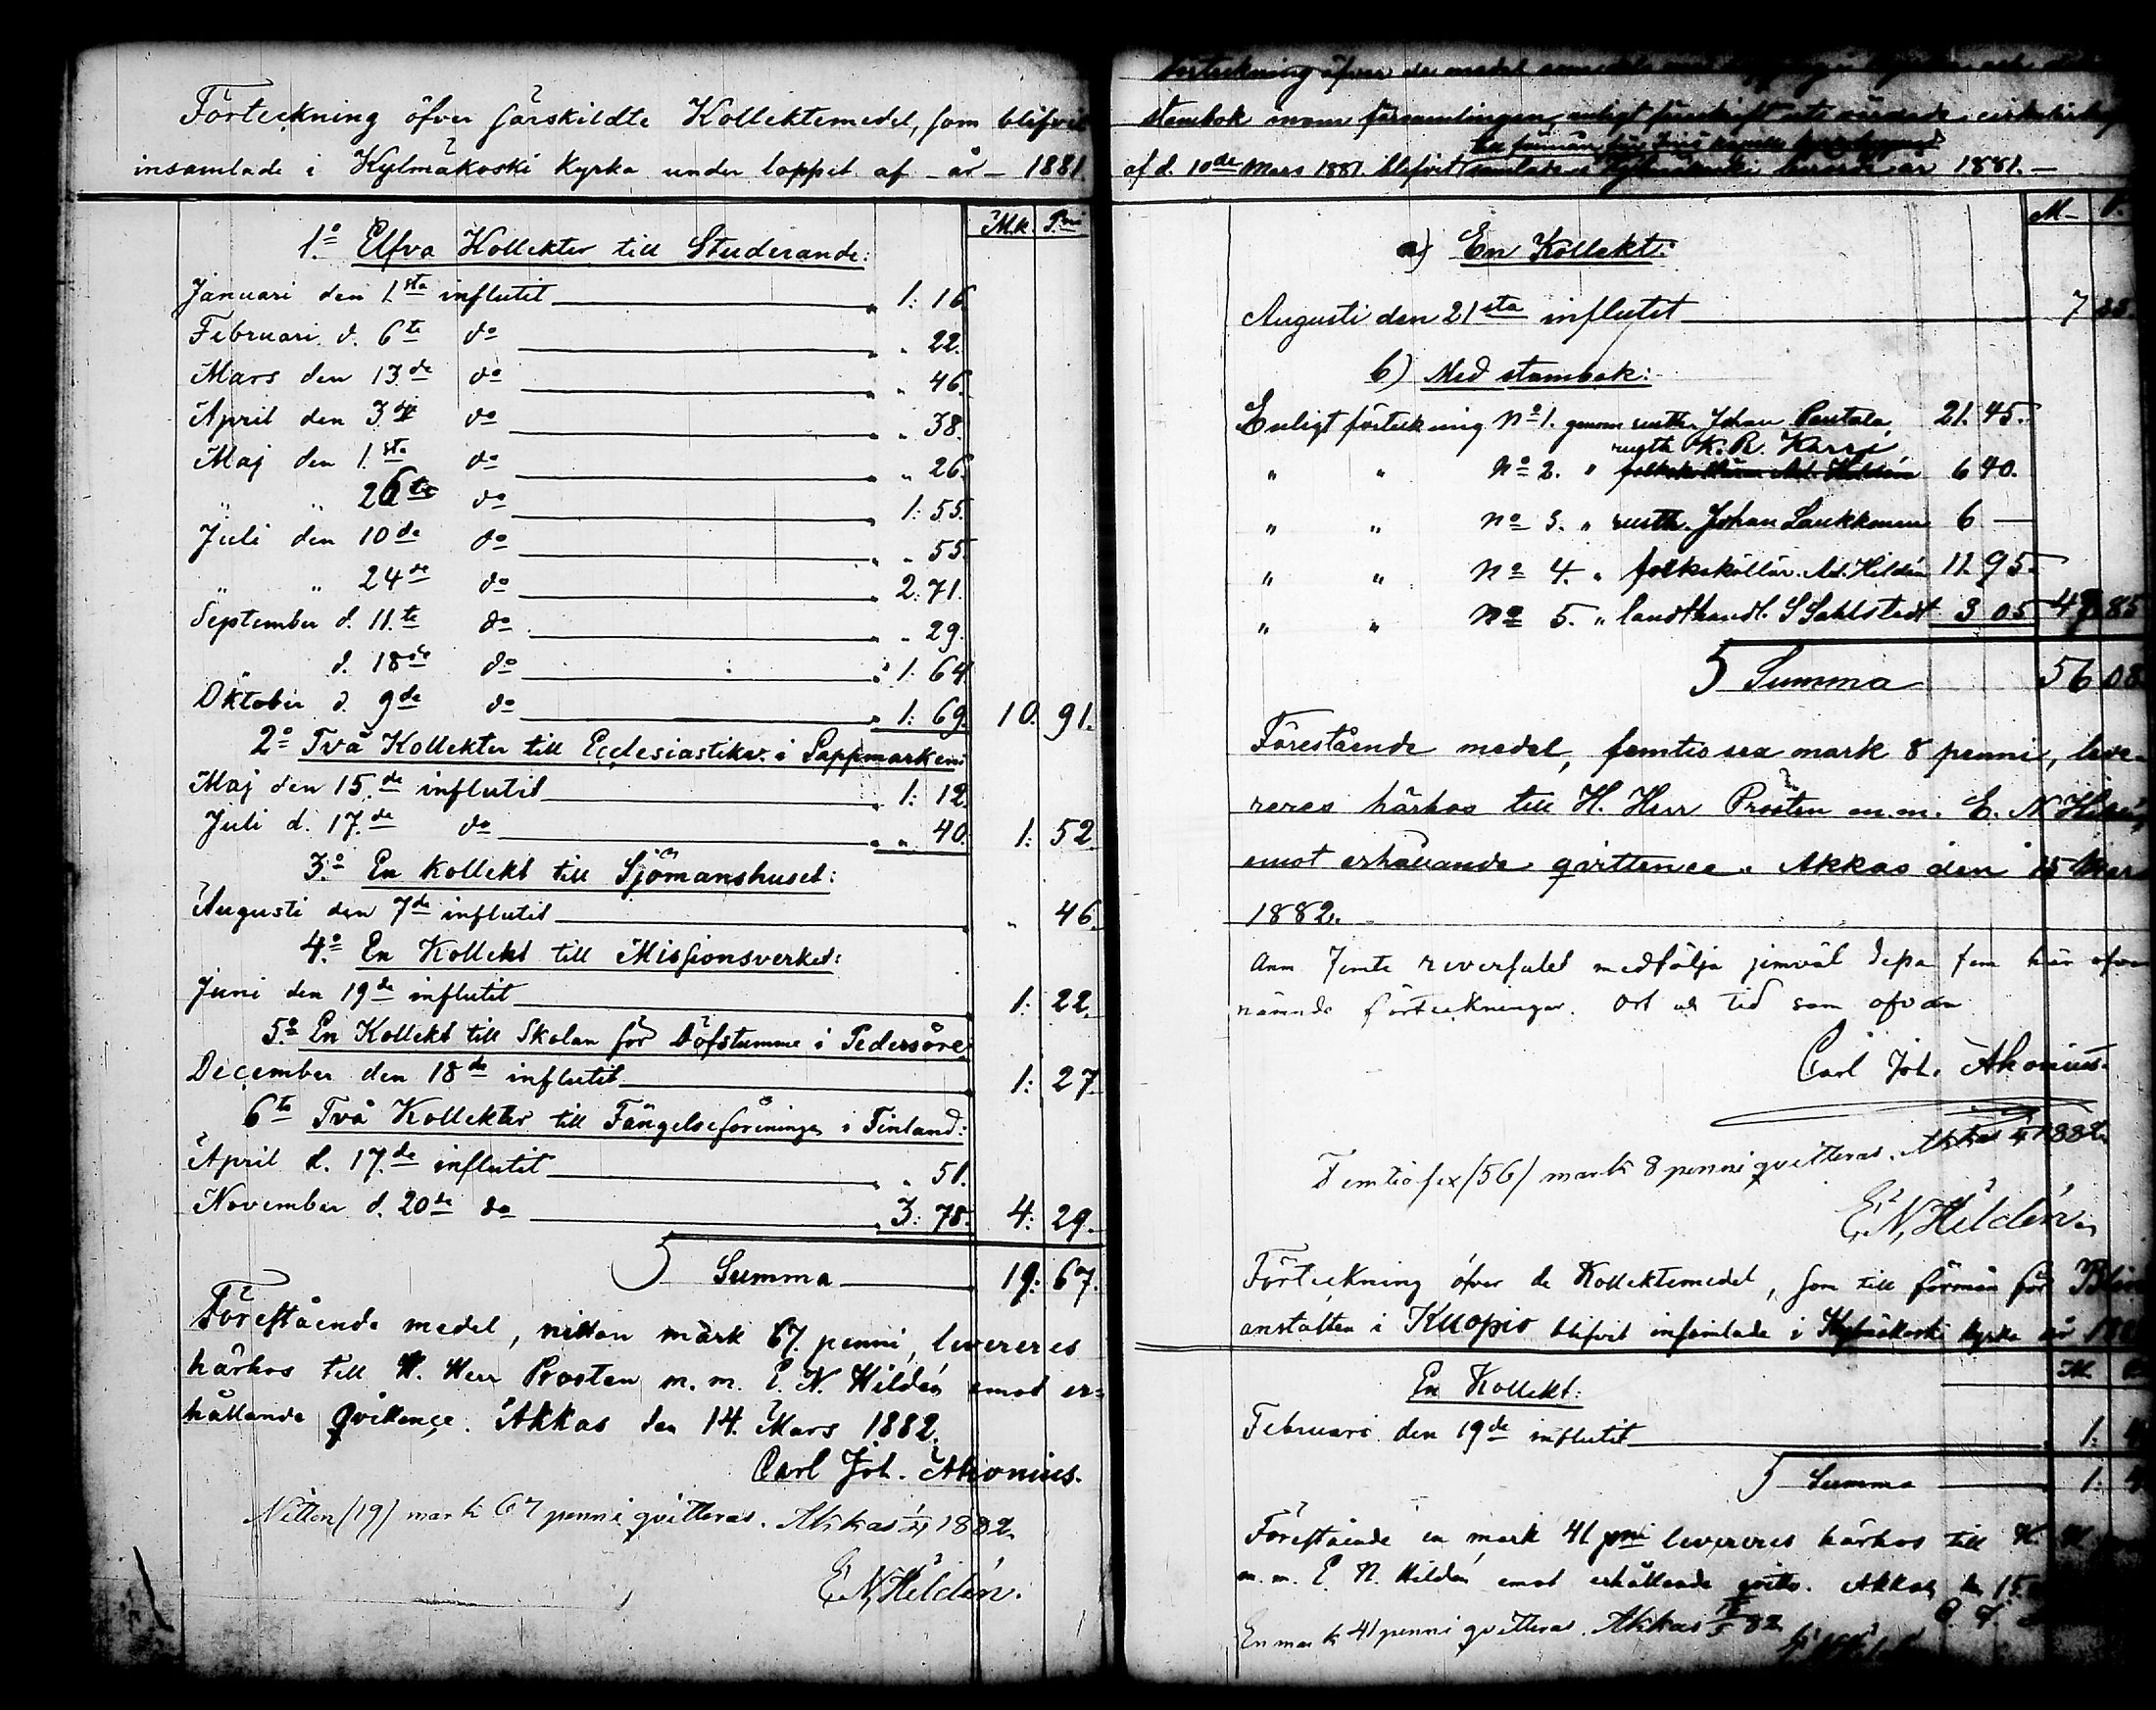 Förteckning öfver särskildte Kollektemedel, som blifvit
insamlade i Kylmäkoski kyrka under loppet af - år - 1881.
Mk. Pni
1:o Elfva Kollekter till Studerande:
Januari den 1.sta influtit 1: 16.
Februari d. 6te do " 22.
Mars den 13.de do " 46.
April den 3.dje do " 38.
Maj den 1.sta do " 26.
" " 26te do 1: 55.
Juli den 10de do " 55.
" " 24de do 2: 71.
September d. 11.te do " 29.
" d. 18de do 1: 64
Oktober d. 9de do 1: 69. 10. 91.
2:o Två Kollekter till Ecclesiastiker i Lappmarken:
Maj den 15.de influtit 1: 12.
Juli d. 17.de do " 40. 1: 52.
3:o En Kollekt till Sjömanshuset:
Augusti den 7de influtit " 46.
4:o En Kollekt till Missionsverket:
Juni den 19de influtit 1: 22.
5:o En Kollekt till Skolan för Döfstumme i Pedersöre
December den 18de influtit 1: 27.
6to Två Kollekter till Fängelseföreningen i Finland:
April d. 17.de influtit " 51.
November d. 20de do 3: 78. 4: 29.
Summa 19: 67.
Förestående medel, nitton mark 67. penni, levereres
härhos till H. Herr Prosten m. m. E. N. Hildén emot er=
hållande qvittence. Akkas den 14. Mars 1882.
Carl Joh. Ahonius.
Nitton (19) mark 67 penni qvitteras. Akkas 1882.
E. N. Hildén.
Förteckning öfver de medel som
stambok inom församlingen enligt föreskrift
af d. 10de Mars 1881. blifvit år 1881. —
M P.
a) En Kollekt:
Augusti den 21sta influtit 7
b) Med stambok:
Enligt förteckning No 1. genom rusth. Johan Pentala 21. 45.
rusth K. R. Karri
" " No 2. " 6 40.
" " No 3. " rusth. Johan Laukkonen 6 —
" " No 4. " folkskollär. Ad. Hildén 11. 95.
" " No 5. " landthandl. S Sahlstedt 3 05 85
Summa 56 08
Förestående medel, femtiosex mark 8 penni, leve-
reres härhos till H. Herr Prosten m. m. E. N Hildén
emot erhållande qvittence. Akkas den 15 Mars
1882.
Anm Jemte reversalet medfölja jemväl dessa fem här ofvan
nämnde förteckningar. Ort och tid som ofvan
Carl Joh. Ahonius.
Femtiosex (56) mark 8 penni qvitteras. Akkas 1882.
E. N. Hildén.
Förteckning öfver de Kollektemedel, som till förmån för
anstalten i Kuopio blifvit insamlade i Kylmäkoski kyrka år
M
En Kollekt:
Februari den 19de influtit 1:
Summa 1:
Förestående en mark 41 pni levereres härhos till H. H
m. m. E. N. Hildén emot erhållande qvitto. Akkas den 15.
En mark 41 penni qvitteras. Akkas 82